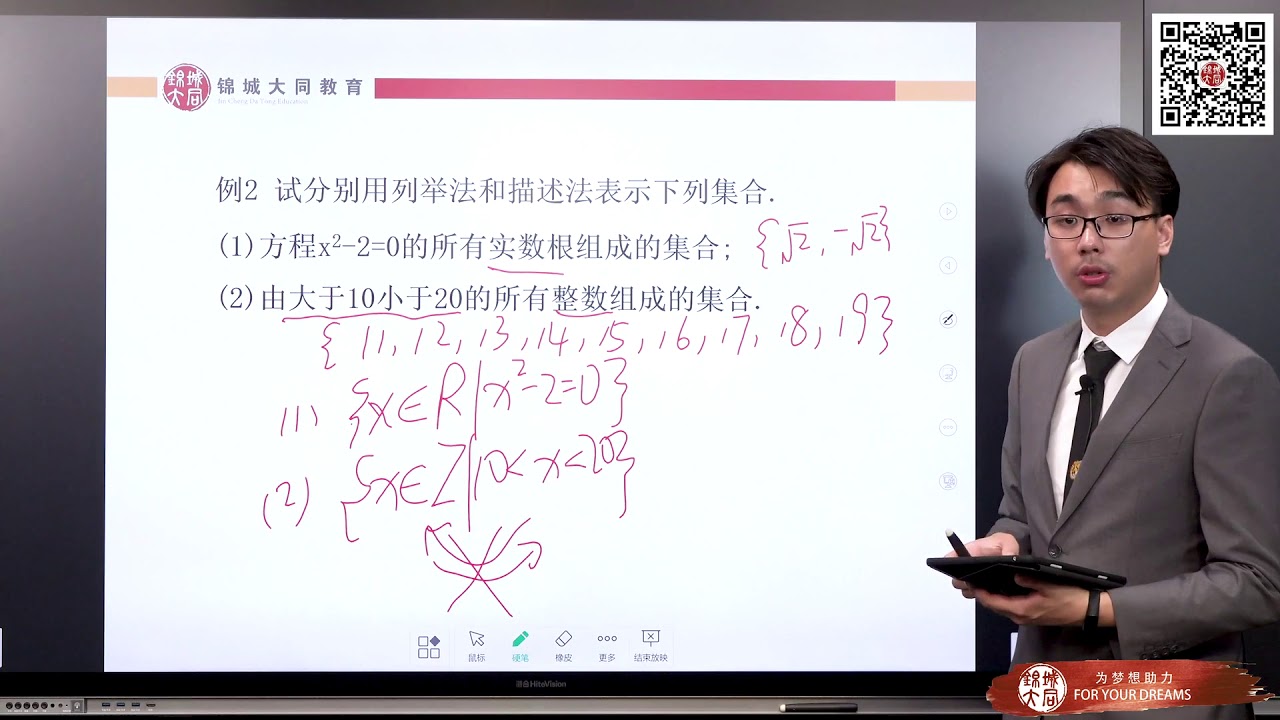 錦城大同
锦城大同教育
Jin Cheng Da Tong Education
例2 试分别用列举法和描述法表示下列集合.
(1)方程x²-2=0的所有实数根组成的集合; {√2, -√2}
(2)由大于10小于20的所有整数组成的集合.
{11, 12, 13, 14, 15, 16, 17, 18, 19}
(1) {x∈R|x²-2=0}
(2) {x∈Z|10<x<20}
鼠标 硬笔 橡皮 更多 结束放映
HiteVision
錦城大同
为梦想助力
FOR YOUR DREAMS